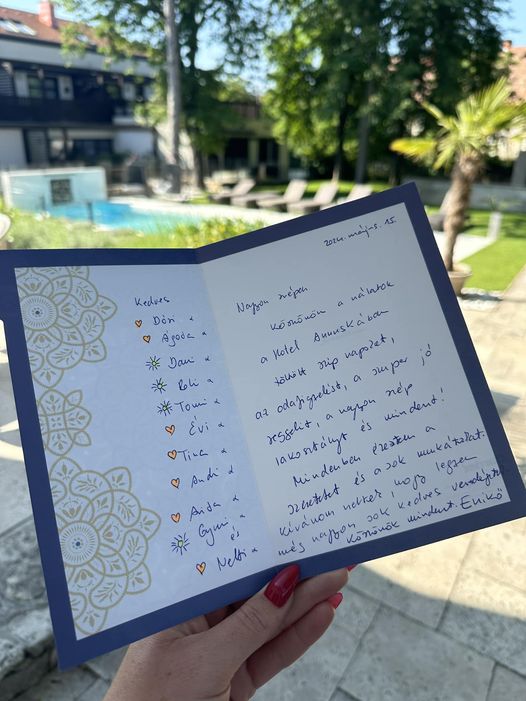 Kedves
Dóri
Ágota
Dani
Robi
Tomi
Évi
Tina
Andi
Anita
Gyuri
és
Nelli
2024. május. 15.
Nagyon szépen
köszönöm a nálatok
a Hotel Annuskában
töltött szép napszet,
az odafigyelést, a szuper jó
reggelit, a nagyon szép
lakosztályt és mindent!
Mindenben éreztem a
szeretetet és a sok munkátokat.
Kívánom nektek, hogy legyen
még nagyon sok kedves vendégetek
Köszönök mindent. Enikő